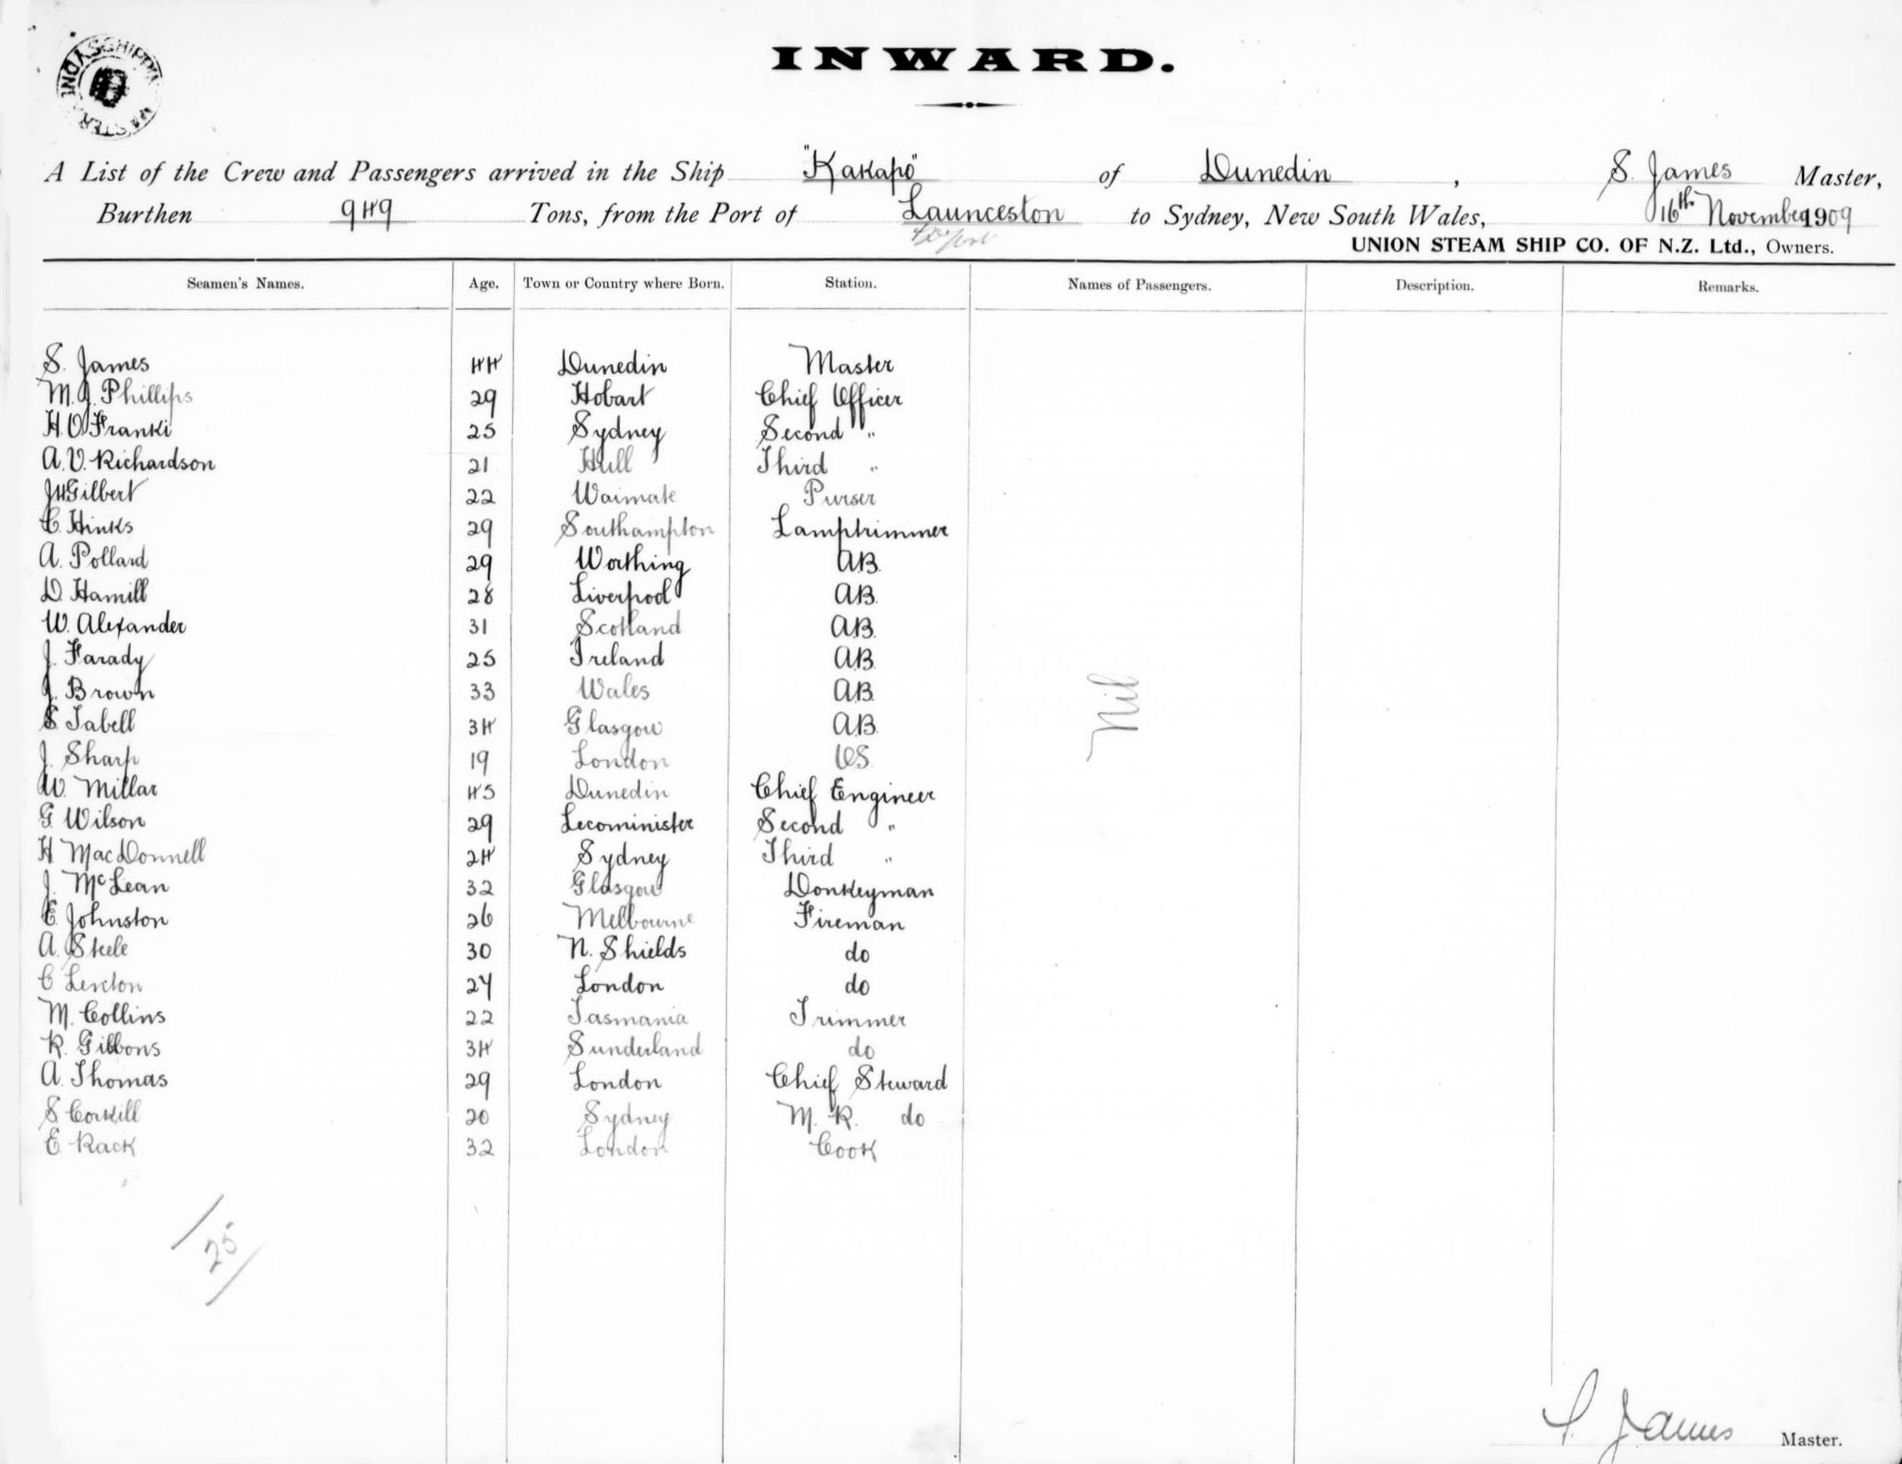 SHIPPING MASTER SYDNEY
INWARD.
A List of the Crew and Passengers arrived in the Ship "Kakapo" of Dunedin, S. James Master,
Burthen 949 Tons, from the Port of Launceston to Sydney, New South Wales, 16th November 1909
UNION STEAM SHIP CO. OF N.Z. Ltd., Owners.
Seamen's Names. Age. Town or Country where Born. Station. Names of Passengers. Description. Remarks.
S. James 44 Dunedin Master
M. J. Phillips 29 Hobart Chief Officer
H. O. Franki 25 Sydney Second "
A. V. Richardson 21 Hull Third "
J H Gilbert 22 Waimate Purser
C. Hinks 29 Southampton Lamptrimmer
A. Pollard 29 Worthing AB.
D. Hamill 28 Liverpool AB.
W. Alexander 31 Scotland AB.
J. Farady 25 Ireland AB.
J. Brown 33 Wales AB.
S Tabell 34 Glasgow AB.
J. Sharp 19 London OS
W. Millar 45 Dunedin Chief Engineer
G Wilson 29 Leominister Second "
H MacDonnell 24 Sydney Third "
J. McLean 32 Glasgow Donkeyman
E. Johnston 26 Melbourne Fireman
A. Steele 30 N. Shields do
C London do
M. Collins 22 Tasmania Trimmer
R. Gibbons 34 Sunderland do
A. Thomas 29 London Chief Steward
S Corkill 20 Sydney M. R. do
E Rack 32 London Cook
Nil
/25/
S. James Master.